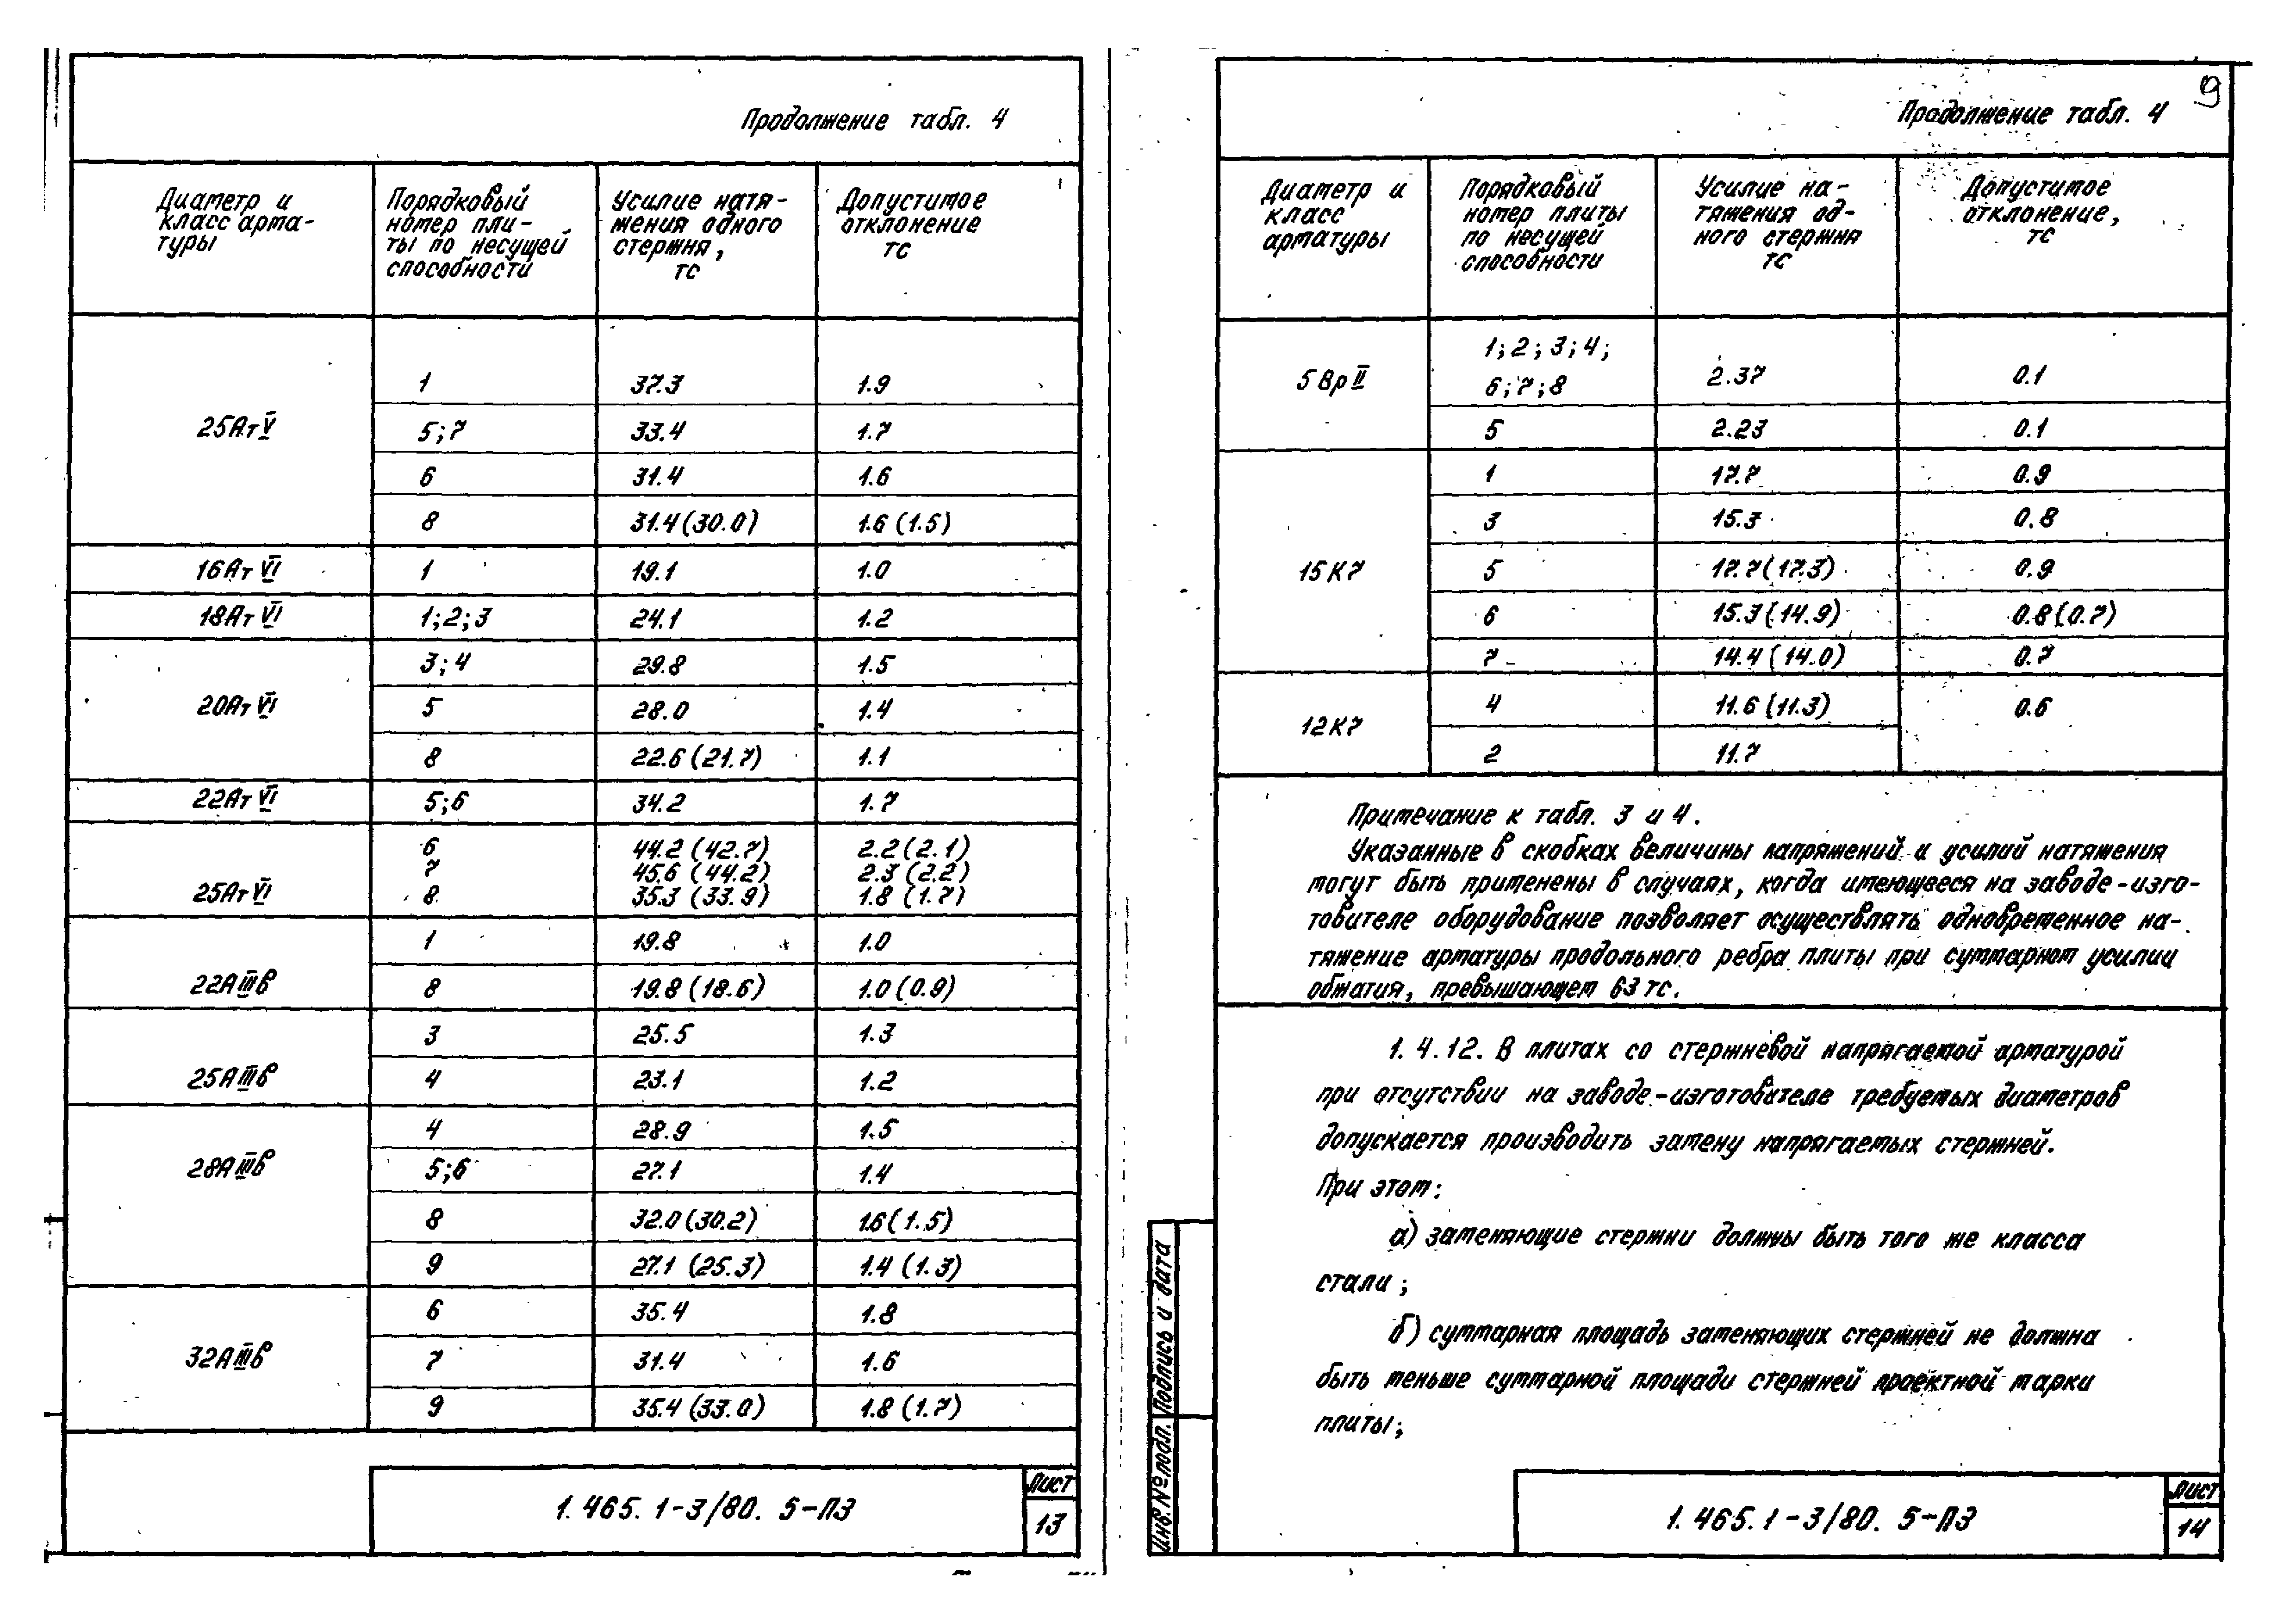 Продолжение табл. 4
Диаметр и класс арма-туры | Порядковый номер пли-ты по несущей способности | Усилие натя-жения одного стержня, тс | Допустимое отклонение тс
25АтV | 1 | 37.3 | 1.9
5;7 | 33.4 | 1.7
6 | 31.4 | 1.6
8 | 31.4 (30.0) | 1.6 (1.5)
16АтVI | 1 | 19.1 | 1.0
18АтVI | 1;2;3 | 24.1 | 1.2
20АтVI | 3;4 | 29.8 | 1.5
5 | 28.0 | 1.4
8 | 22.6 (21.7) | 1.1
22АтVI | 5;6 | 34.2 | 1.7
25АтVI | 6 | 44.2 (42.7) | 2.2 (2.1)
7 | 45.6 (44.2) | 2.3 (2.2)
8 | 35.3 (33.9) | 1.8 (1.7)
22АIIIв | 1 | 19.8 | 1.0
8 | 19.8 (18.6) | 1.0 (0.9)
25АIIIв | 3 | 25.5 | 1.3
4 | 23.1 | 1.2
28АIIIв | 4 | 28.9 | 1.5
5;6 | 27.1 | 1.4
8 | 32.0 (30.2) | 1.6 (1.5)
9 | 27.1 (25.3) | 1.4 (1.3)
32АIIIв | 6 | 35.4 | 1.8
7 | 31.4 | 1.6
9 | 35.4 (33.0) | 1.8 (1.7)
1.465.1-3/80. 5-ПЗ
Лист
13
9
Продолжение табл. 4
Диаметр и класс арматуры | Порядковый номер плиты по несущей способности | Усилие на-тяжения од-ного стержня тс | Допустимое отклонение, тс
5ВрII | 1; 2; 3; 4; 6; 7; 8 | 2.37 | 0.1
5 | 2.23 | 0.1
15К7 | 1 | 17.7 | 0.9
3 | 15.3 | 0.8
5 | 17.7 (17.3) | 0.9
6 | 15.3 (14.9) | 0.8 (0.7)
7 | 14.4 (14.0) | 0.7
12К7 | 4 | 11.6 (11.3) | 0.6
2 | 11.7
Примечание к табл. 3 и 4.
Указанные в скобках величины напряжений и усилий натяжения
могут быть применены в случаях, когда имеющееся на заводе-изго-
товителе оборудование позволяет осуществлять одновременное на-
тяжение арматуры продольного ребра плиты при суммарном усилии
обжатия, превышающем 63 тс.
1.4.12. В плитах со стержневой напрягаемой арматурой
при отсутствии на заводе-изготовителе требуемых диаметров
допускается производить замену напрягаемых стержней.
При этом:
а) заменяющие стержни должны быть того же класса
стали;
б) суммарная площадь заменяющих стержней не должна
быть меньше суммарной площади стержней проектной марки
плиты;
Инв.№подл. Подпись и дата
1.465.1-3/80. 5-ПЗ
Лист
14